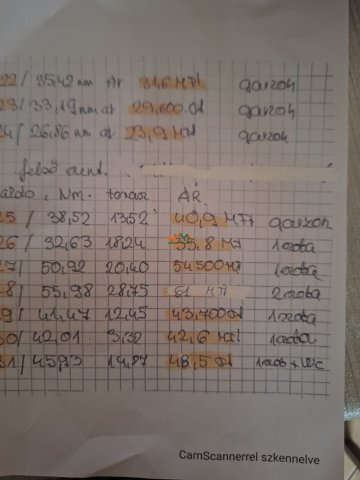 22/ 35,42 nm Ár 31,6 MFt garzon
23/ 33,19 nm ár 29,600.Ft garzon
24/ 26,86 nm ár 23,9 MFt garzon
felső szint.
Nm. terasz ÁR.
25/ 38,52 13,52 40,9 MFt garzon
26/ 32,63 18,24 35,8 MFt 1 szoba
27/ 50,92 20,40 54 500 Ft 1 szoba
28/ 55,98 28,75 61 MFt 2 szoba
29/ 41,47 12,45 43,700 Ft 1 szoba
30/ 42,01 3,32 42,6 MFt 1 szoba
31/ 45,93 14,87 48,5 Ft 1 szob + WC
CamScannerrel szkennelve